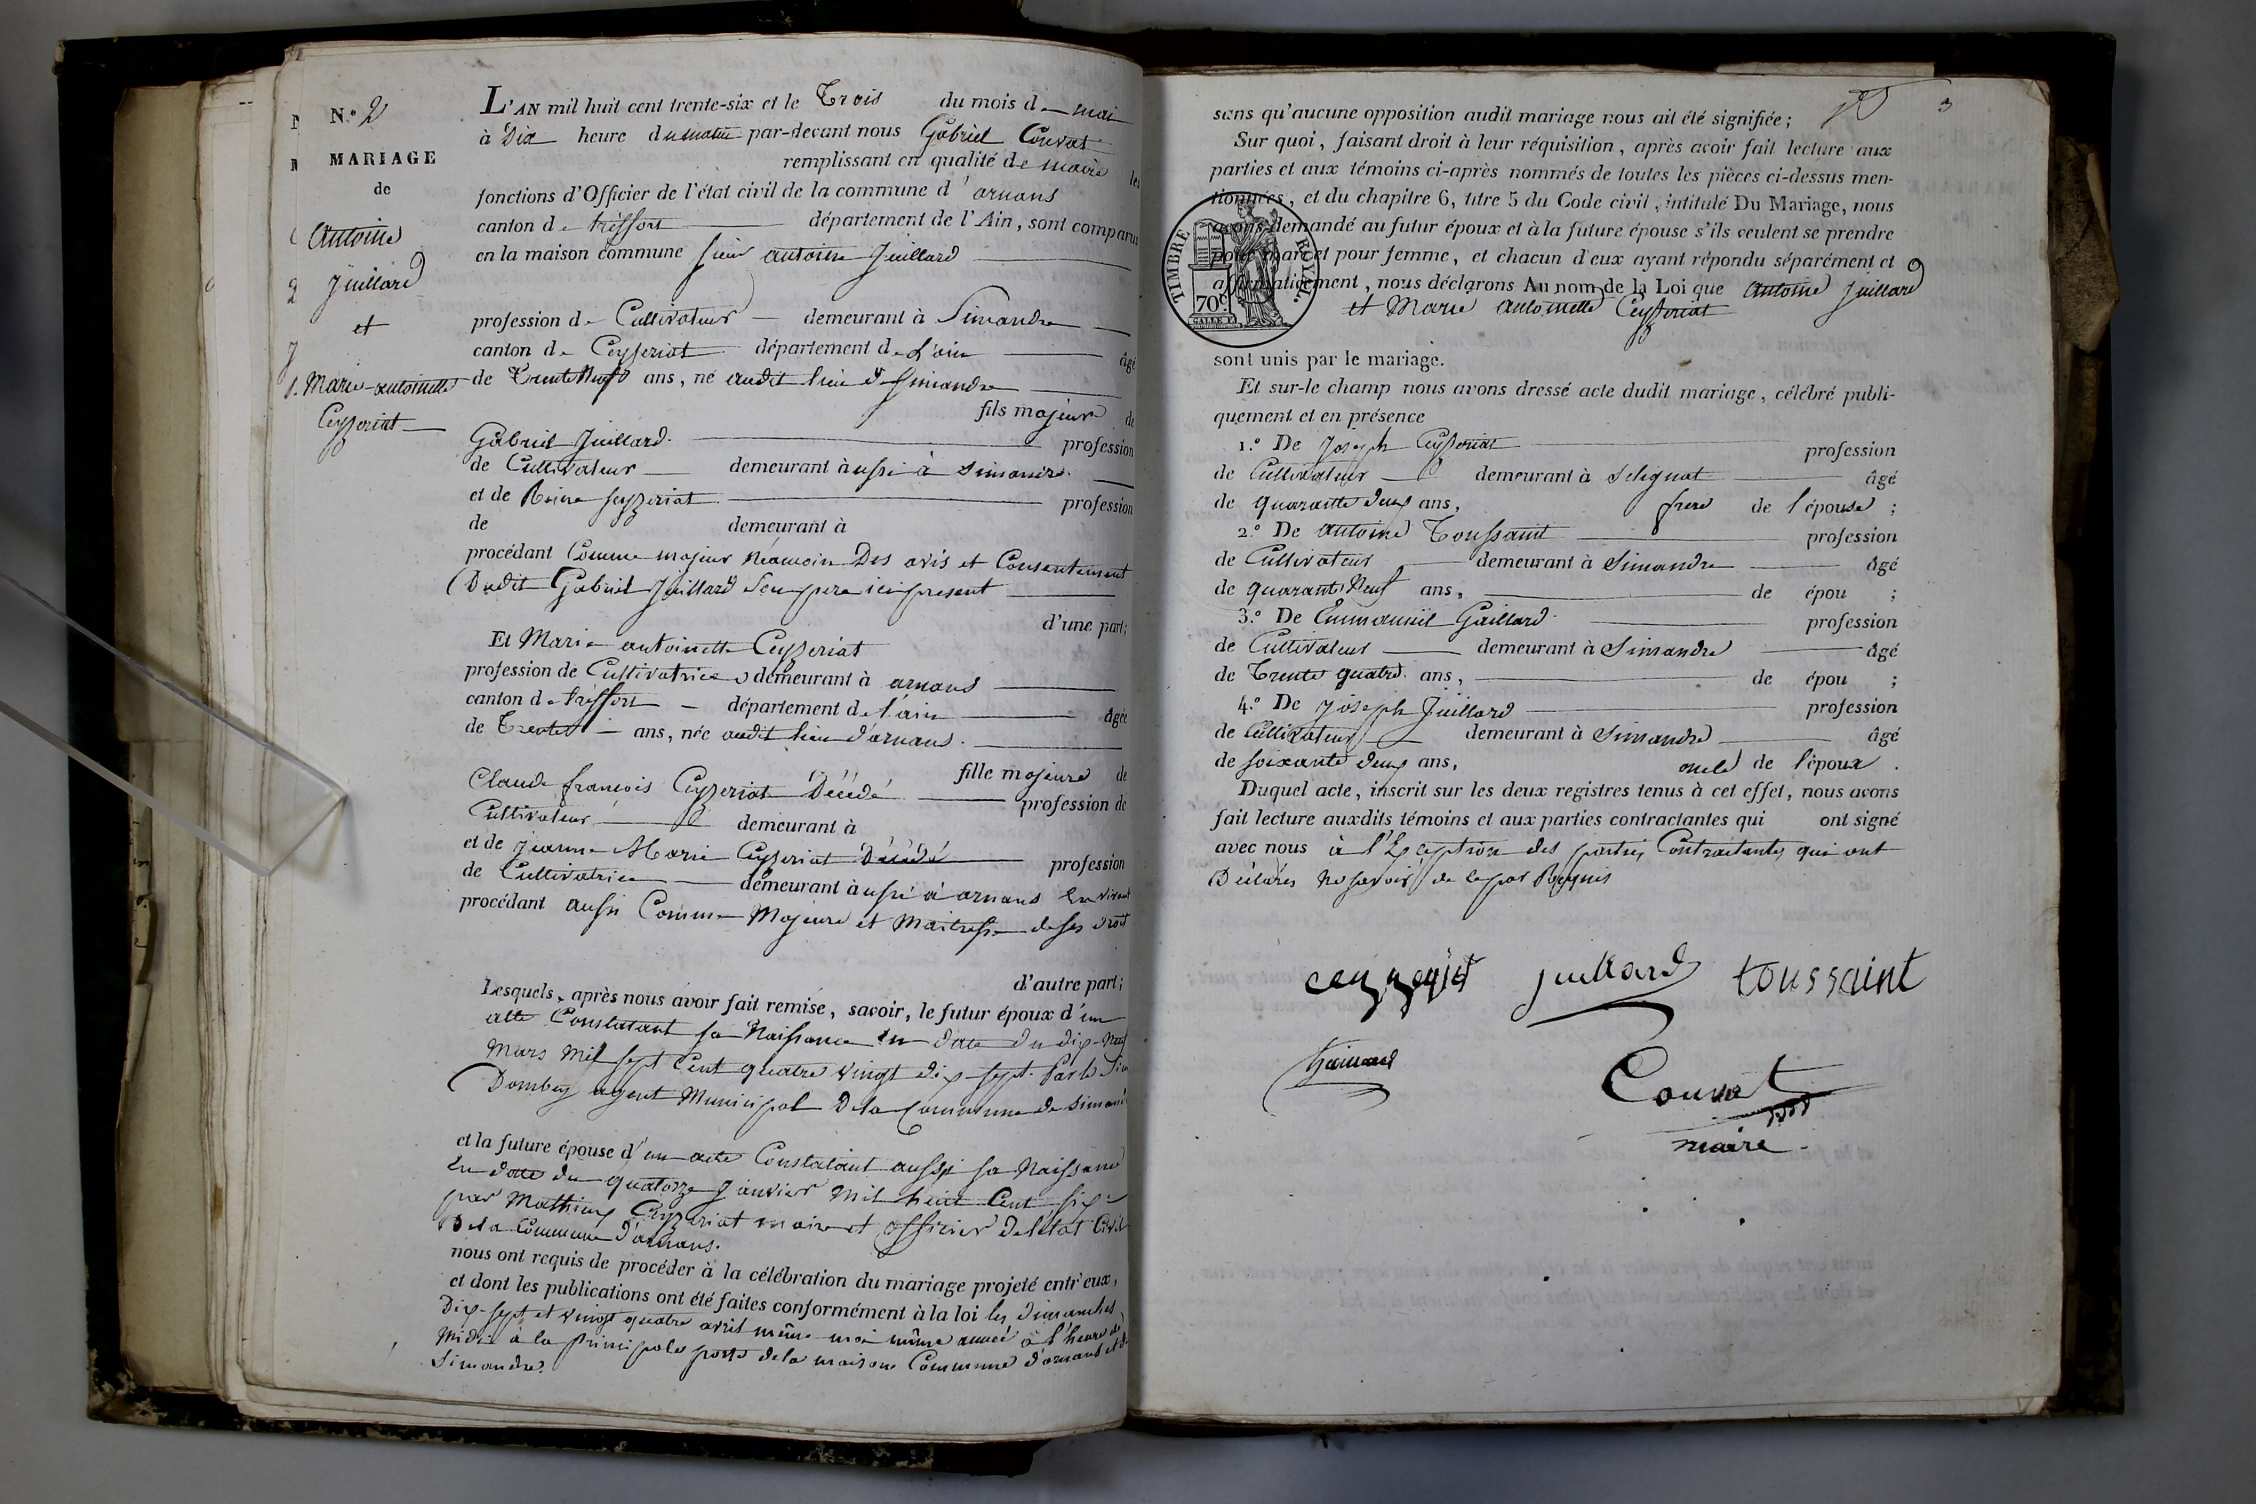 N.º 2
MARIAGE
de
Antoine
Juillard
et
Marie-antoinette
Ceyzeriat
L'AN mil huit cent trente-six et le Trois du mois de mai
à Dix heure du matin par-devant nous Gabriel Convert
remplissant en qualité de maire les
fonctions d'Officier de l'état civil de la commune d'arnans
canton de tréffort département de l'Ain, sont comparus
en la maison commune sieur antoine Juillard
profession de Cultivateur demeurant à Simandre
canton de Ceyzeriat département de L'ain âgé
de Trente Neuf ans, né audit lieu de Simandre
fils majeur de
Gabriel Juillard profession
de Cultivateur demeurant à ussi à Simandre
et de Reine Ceyzeriat profession
de demeurant à
procédant Comme majeur Néamoin Des avis et Consentement
Dudit Gabriel Juillard Seu pere ici present
d'une part;
Et Marie antoinette Ceyzeriat
profession de Cultivatrice demeurant à arnans
canton de tréffort département de l'ain âgée
de Trente ans, née audit lieu d'arnans
fille majeure de
Claude francois Ceyzeriat Décédé profession de
Cultivateur demeurant à
et de jeanne Marie Ceyzeriat Décédé profession
de Cultivatrice demeurant à ussi à arnans En vivant
procédant aussi Comme Majeure et Maitresse de ses droit
d'autre part;
Lesquels, après nous avoir fait remise, savoir, le futur époux d'un
atte Constatant sa Naissance En date du dix-Neuf
Mars Mil sept Cent quatre vingt dix-sept Par le
Dombey agent Municipal De la Commune de Simand
et la future épouse d'un acte Constatant aussi sa Naissance
En date du quatorze Janvier Mil huit Cent six
par Mathieu Ceyzeriat maire et officier De létat Civil
De la Commune D'arnans.
nous ont requis de procéder à la célébration du mariage projeté entr'eux,
et dont les publications ont été faites conformément à la loi les Dimanches
Dix-sept et vingt quatre avril même année à l'heure de
Midi à la Principale porte de la maison Commune d'arnans et de
Simandre.
3
sans qu'aucune opposition audit mariage nous ait été signifiée;
Sur quoi, faisant droit à leur réquisition, après avoir fait lecture aux
parties et aux témoins ci-après nommés de toutes les pièces ci-dessus men-
tionnées, et du chapitre 6, titre 5 du Code civil, intitulé Du Mariage, nous
avons demandé au futur époux et à la future épouse s'ils veulent se prendre
pour mari et pour femme, et chacun d'eux ayant répondu séparément et
affirmativement, nous déclarons Au nom de la Loi que Antoine Juillard
et Marie Antoinette Ceyzeriat
TIMBRE ROYAL.
70c.
sont unis par le mariage.
Et sur-le champ nous avons dressé acte dudit mariage, célébré publi-
quement et en présence
1.º De Joseph Ceyzeriat profession
de Cultivateur demeurant à Selignat âgé
de quarante deux ans, frere de l'épouse;
2.º De Antoine Toussaint profession
de Cultivateur demeurant à Simandre âgé
de quarant Neuf ans, de épou ;
3.º De Emmanuel Gaillard profession
de Cultivateur demeurant à Simandre âgé
de Trente quatre ans, de épou ;
4.º De Joseph Juillard profession
de Cultivateur demeurant à Simandre âgé
de soixante deux ans, oncle de l'époux.
Duquel acte, inscrit sur les deux registres tenus à cet effet, nous avons
fait lecture auxdits témoins et aux parties contractantes qui ont signé
avec nous à l'Exception des parties Contractantes qui ont
Déclarés Ne savoir de ce par Requis
ceyzeriat juillard toussaint
Gaillard
Convert
maire